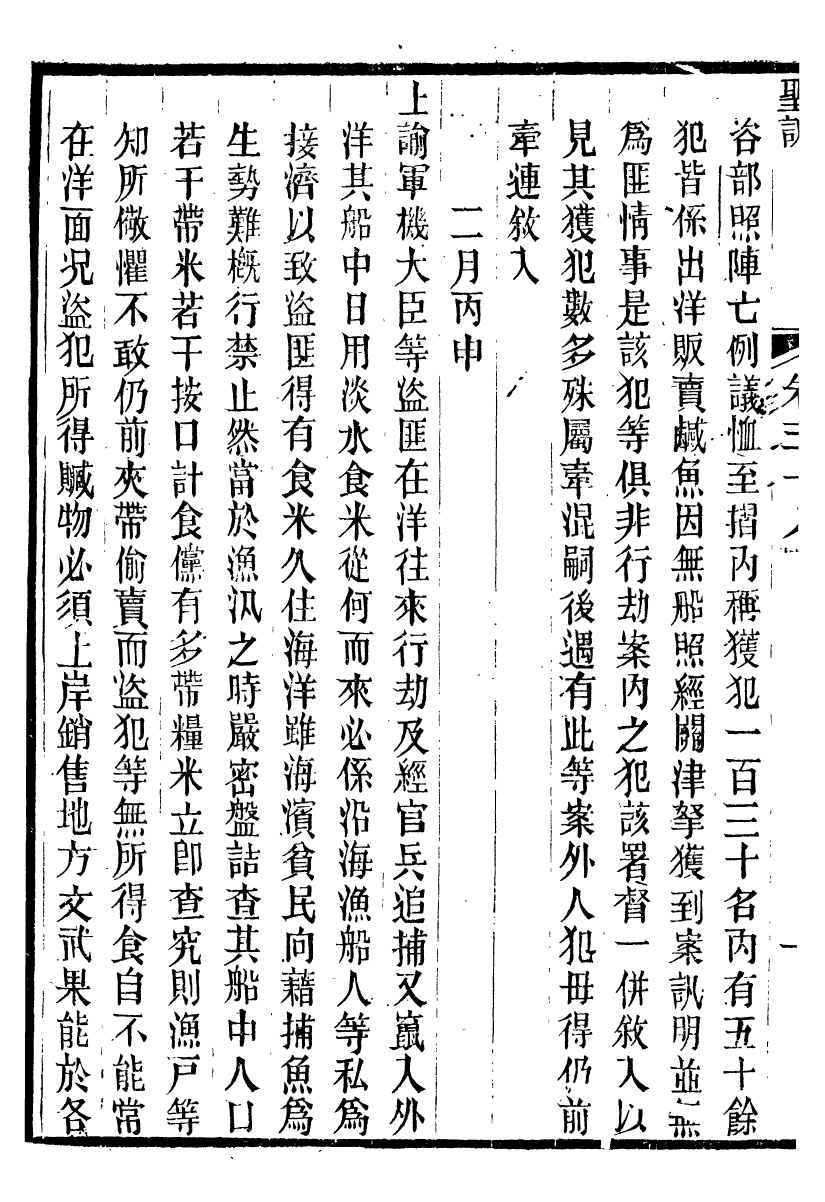 聖訓
咨部照陣亡例議恤至摺內稱獲犯一百三十名內有五十餘
犯皆係出洋販賣鹹魚因無船照經關津拏獲到案訊明並無
爲匪情事是該犯等俱非行劫案內之犯該署督一併敘入以
見其獲犯數多殊屬牽混嗣後遇有此等案外人犯毋得仍前
牽連敘入
二月丙申
上諭軍機大臣等盜匪在洋往來行劫及經官兵追捕又竄入外
洋其船中日用淡水食米從何而來必係沿海漁船人等私爲
接濟以致盜匪得有食米久住海洋雖海濱貧民向藉捕魚爲
生勢難概行禁止然當於漁汛之時嚴密盤詰查其船中人口
若干帶米若干按口計食儻有多帶糧米立卽查究則漁戸等
知所儆懼不敢仍前夾帶偷賣而盜犯等無所得食自不能常
在洋面况盜犯所得贓物必須上岸銷售地方文武果能於各